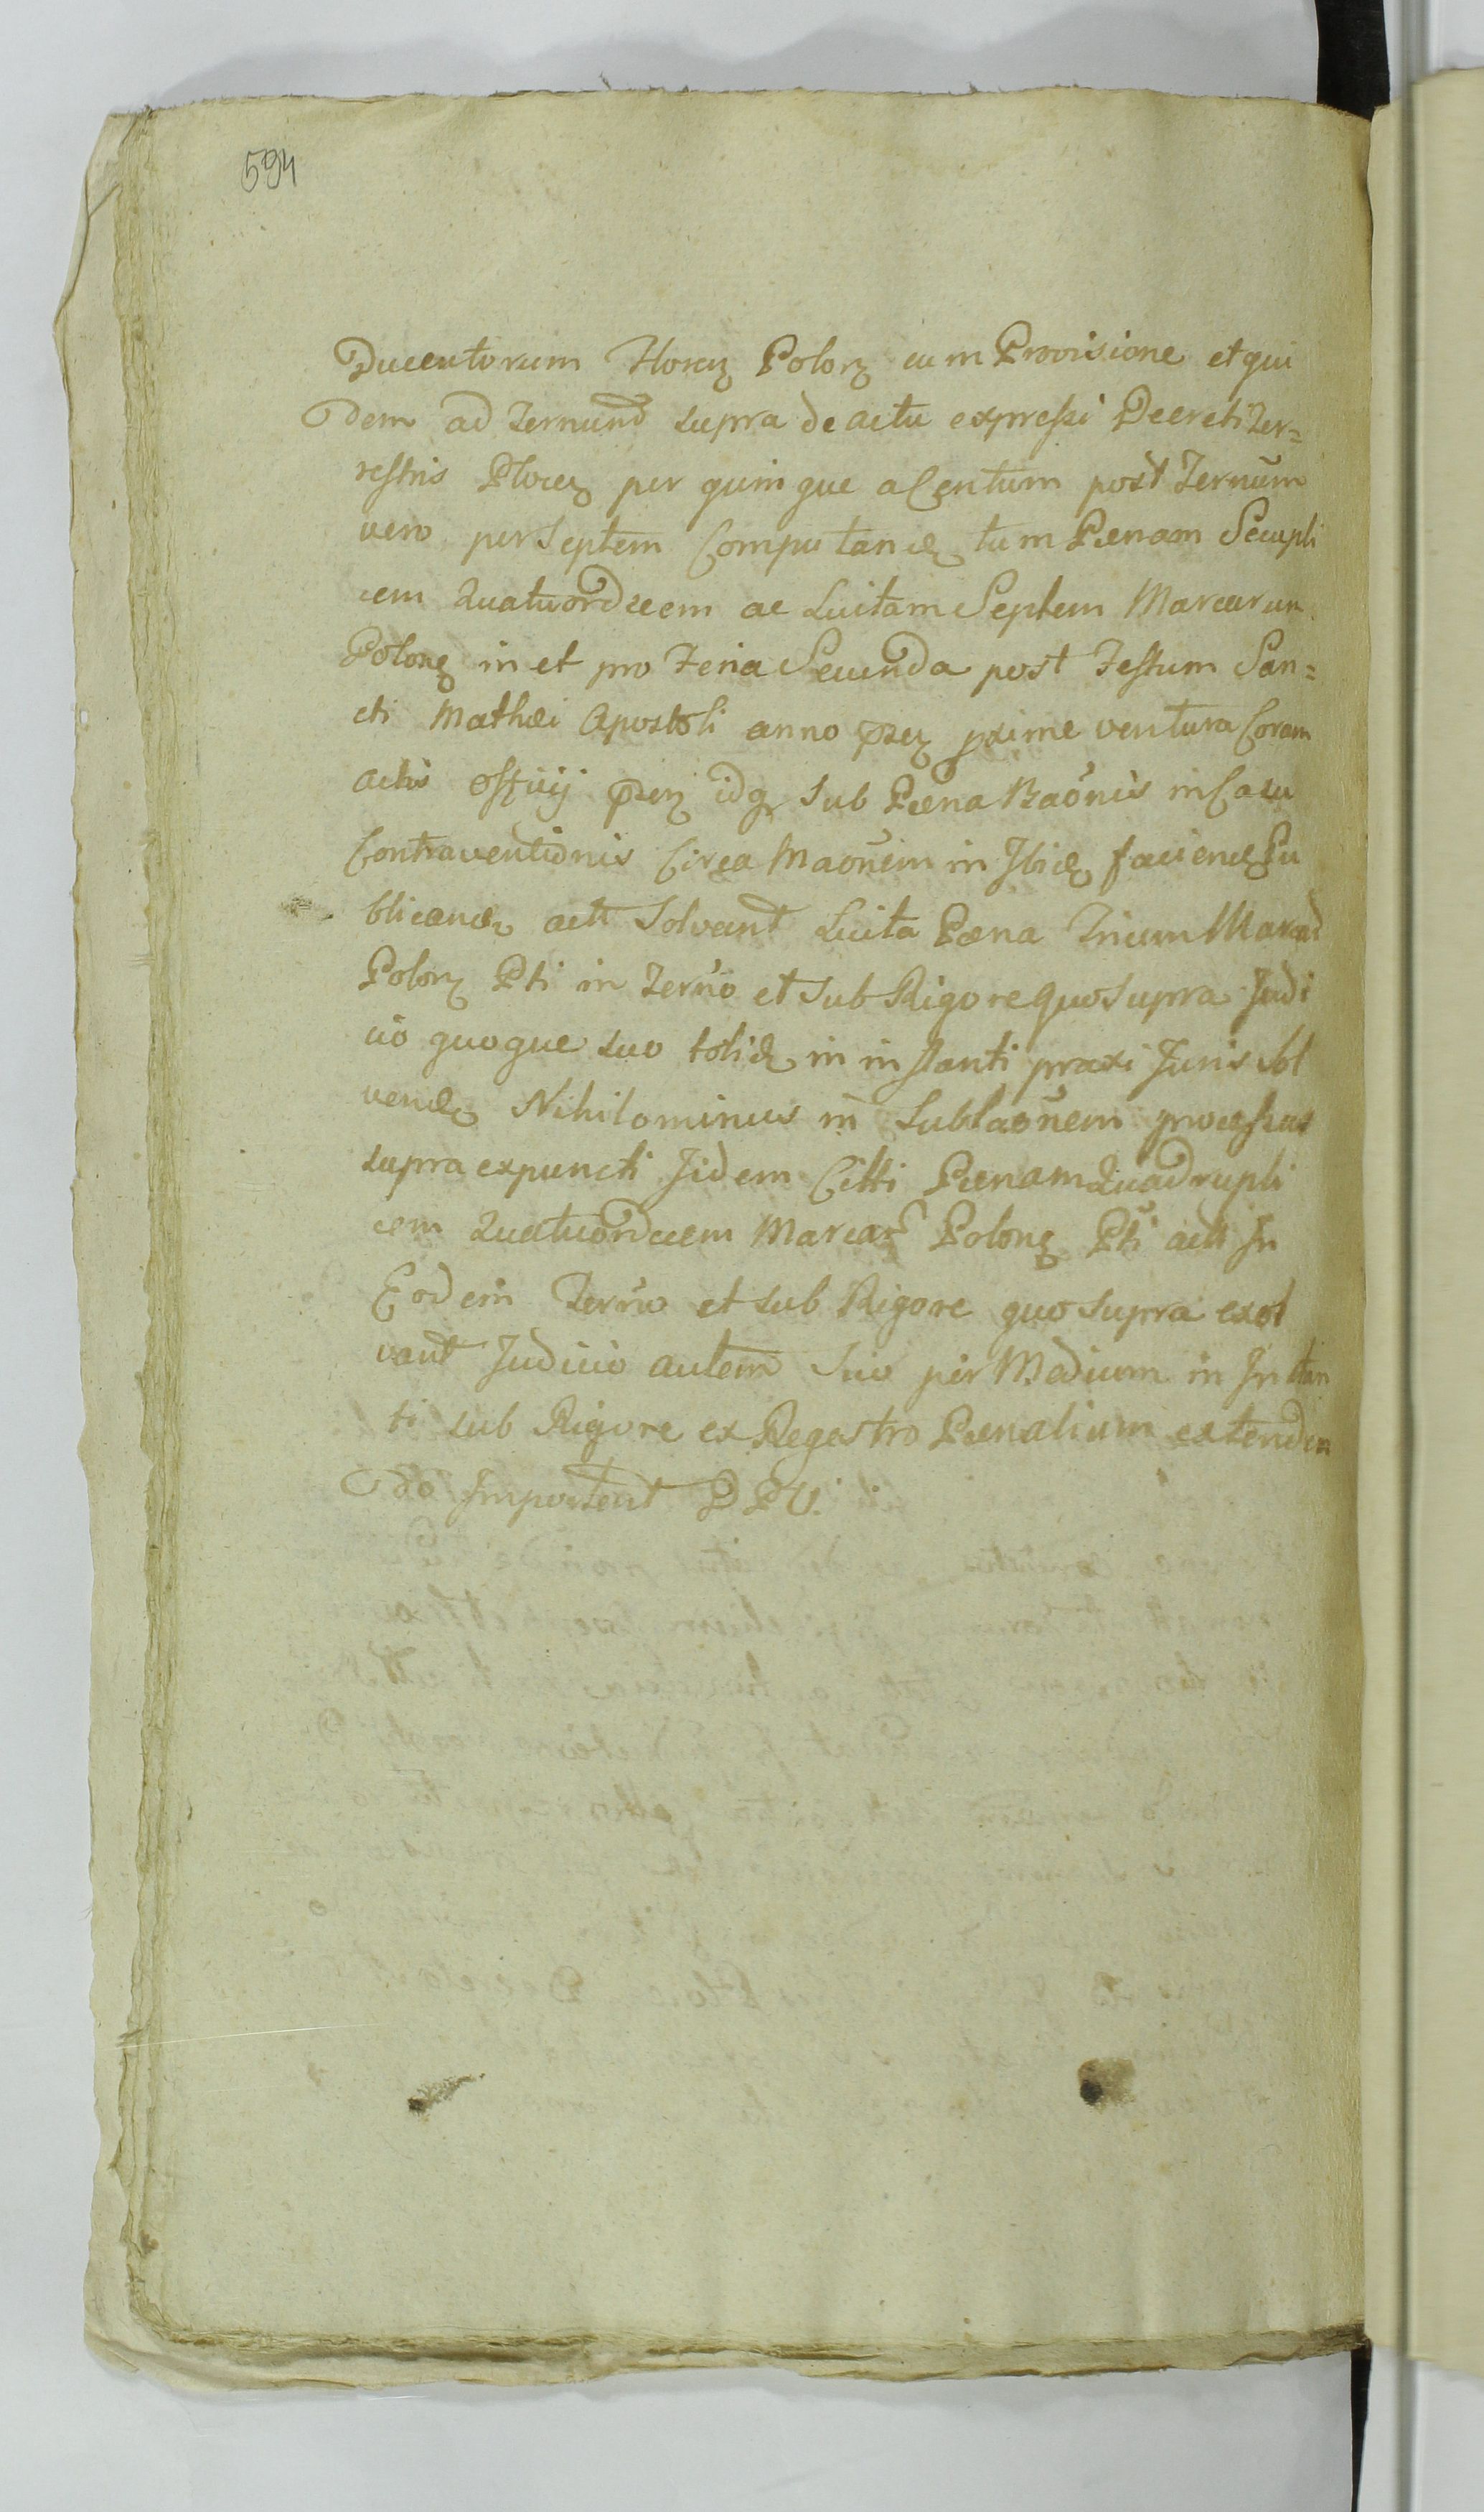 594
Ducentorum Floreꝝ Poloꝝ cum Provisione et qui
dem ad Termund supra de actu expreſsi Decreti Ter=
reſtris Ploceꝝ per quinque a Centum post Termum
vero per Septem Computanꝺ tum Pænam Secupli
cem Quatuordecem ac Luitam Septem Marcarum
Poloneꝝ in et pro Feria Secunda post Feſtum San=
cti Mathæi Apostoli anno prꝫ pxime ventura Coram
actis offiij prꝫ idq sub Pæna Baõnis in Casu
Contraventionis Circa Maõnem in Ibiꝺ facienꝺ Pu
blicanꝺ actt Solvant Luita Pæna Trium Marcar
Poloꝝ Pti in Termo et sub Rigore quo supra Judi
cio quoque suo toliꝺ in inſtanti praxi Juris Sol
venꝺ Nihilominus in Sublaõnem proceſsus
supra expuncti Jidem Citti Pænam Quadrupli
cem Quatuordecem Marcar Poloneꝝ Pti actt In
Eodem Termo et sub Rigore quo supra exol
vant Judicio autem Suo per Medium in Instan
ti sub Rigore ex Regestro Pænalium extenden
do Importent P P V.